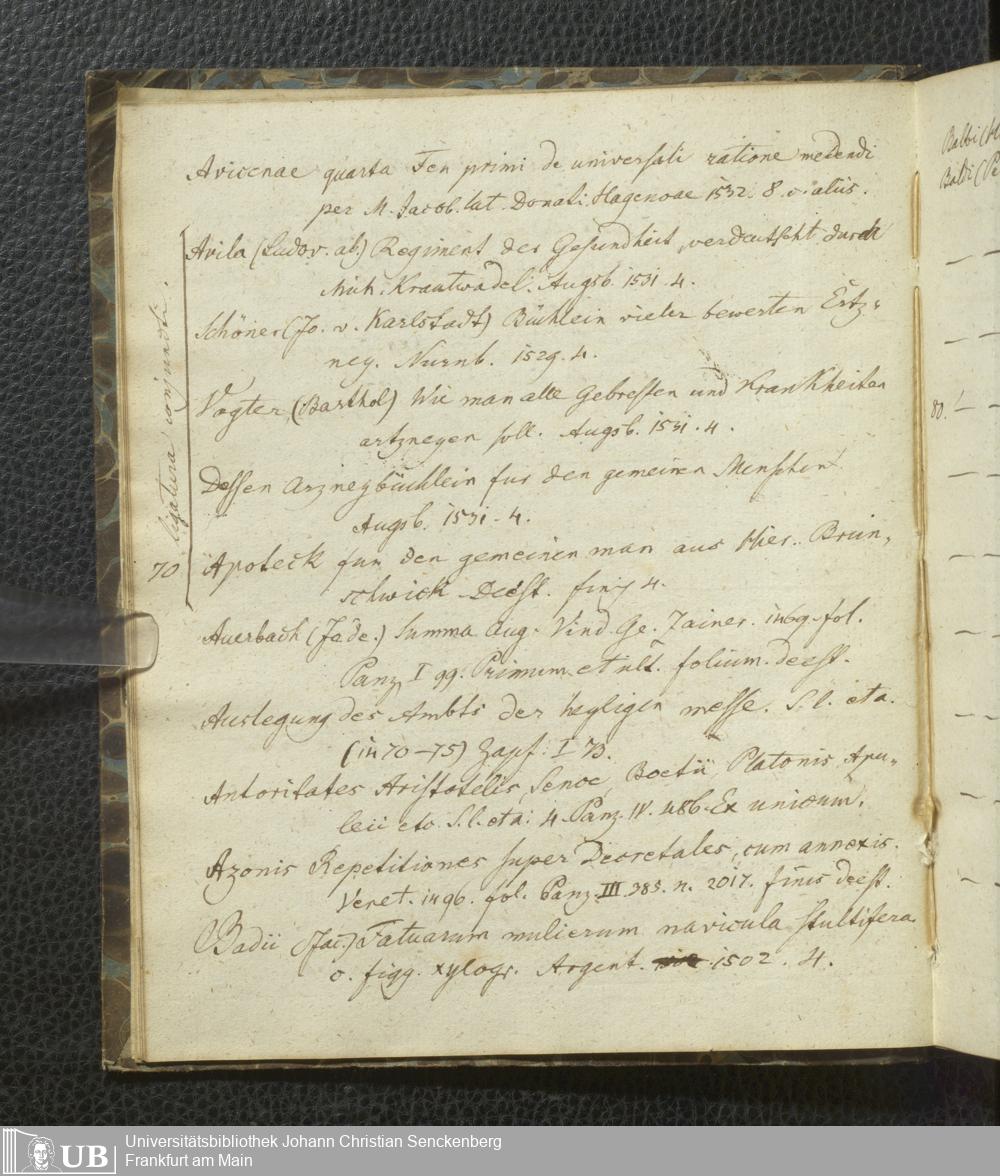 Avicenae quarta Fen primi de universali ratione medendi
per M. Jacob. lat. Donati. Hagenoae 1532. 8. v. aliis.
Avila (Ludov. ab.) Regiment der Gesundheit, verdeutscht durch
Mich. Krautwadel. Augsb. 1531. 4.
Schöner (Jo. v. Karlstadt) Büchlein vieler bewerten Ertz-
ney. Nurnb. 1529. 4.
Vogter (Barthol) Wie man alle Gebressen und Krankheiten
artzneyen soll. Augsb. 1531. 4.
Dessen Arzneybüchlein fur den gemeinen Menschen
Augsb. 1531. 4.
70 Apoteck fur den gemeinen man aus Hier. Brun,
schwick Deest. finis 4.
ligatura conjuncti.
Auerbach (Jo de.) Summa Aug. Vind. Ge. Zainer. 1469. fol.
Panz. I 99. Primum et ult. folium deest.
Auslegung des Ambts der heyligen messe. S. l. et a.
(1470-75) Zapf. I
Autoritates Aristotelis, Senec, Boetii, Platonis, Apu-
leii etc. S. l. et a. 4. Panz. IV. 486. Ex unicum.
Azonis Repetitiones super Decretales, cum annexis.
Venet. 1496. fol. Panz. III. 385. n. 2017. finis deest.
Badii (Jac.) Fatuarum mulierum navicula stultifera
c. figg. xylogr. Argent. 1502. 4.
Balbi
Baldi (Pe
80!
UB
Universitätsbibliothek Johann Christian Senckenberg
Frankfurt am Main